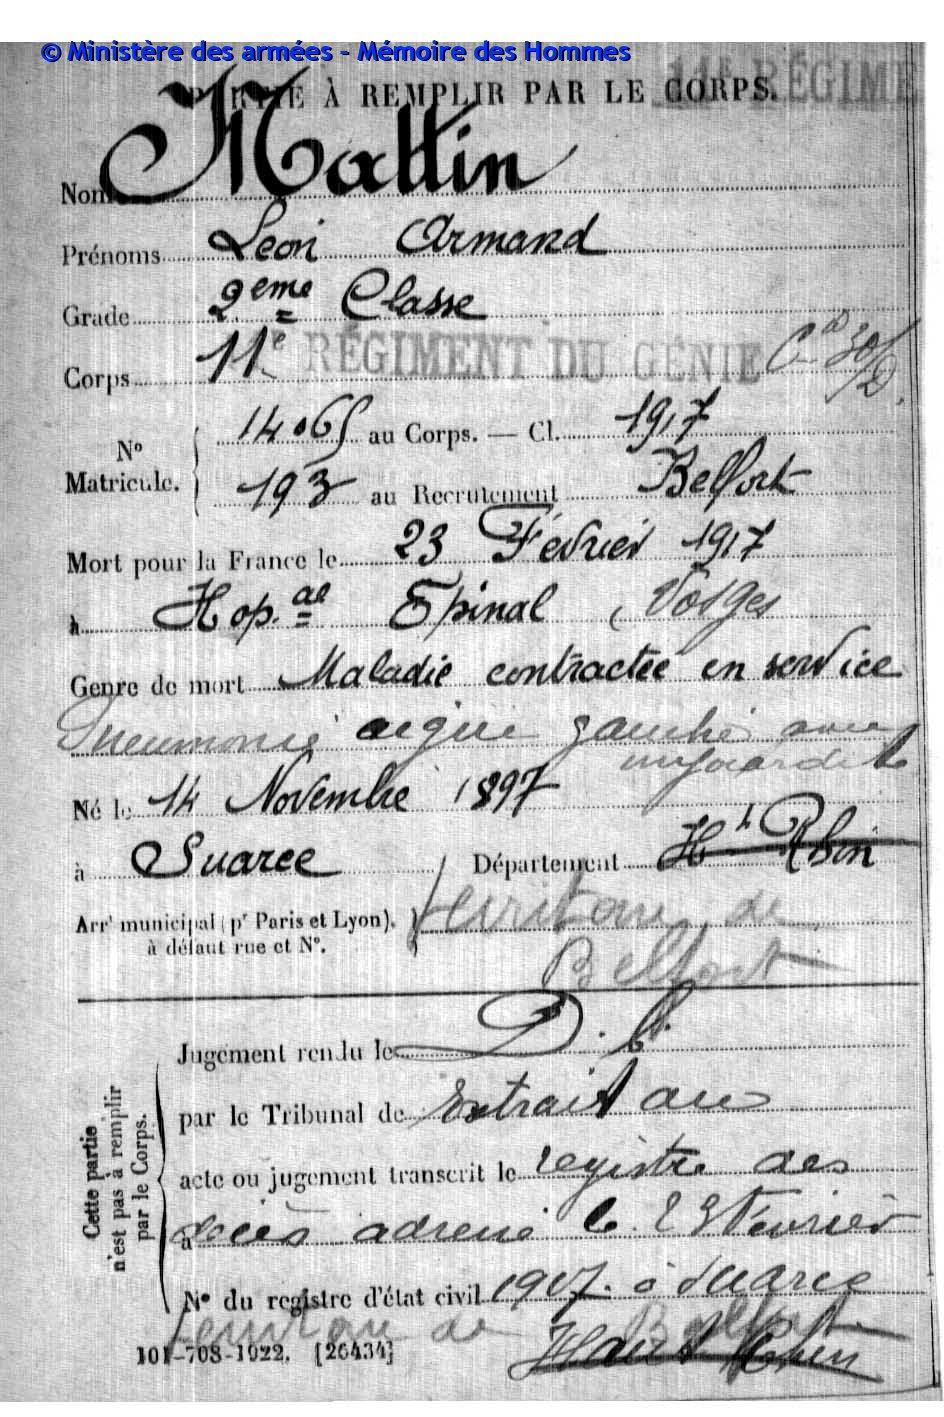 © Ministère des armées - Mémoire des Hommes
PARTIE À REMPLIR PAR LE CORPS.
RÉGIME
Nom Mattin
Prénoms Léon Armand
Grade 2ème Classe
Corps 11e RÉGIMENT DU GÉNIE
Nº Matricule.
14065 au Corps. — Cl. 1917
193 au Recrutement Belfort
Mort pour la France le 23 Février 1917
à Hop.al Epinal (Vosges
Genre de mort Maladie contractée en service
Pneumonie aigue gauche avec
myocardite
Né le 14 Novembre 1897
à Suarce Département Ht Rhin
Arrt municipal (pr Paris et Lyon), à défaut rue et Nº.
Territoire de
Belfort
Cette partie n'est pas à remplir par le Corps.
Jugement rendu le
par le Tribunal de Extrait au
acte ou jugement transcrit le registre des
à décès adressé le 23 Février
Nº du registre d'état civil 1917. à Suarce
Territoire de Belfort
Haut Rhin
101-708-1922. [26434]